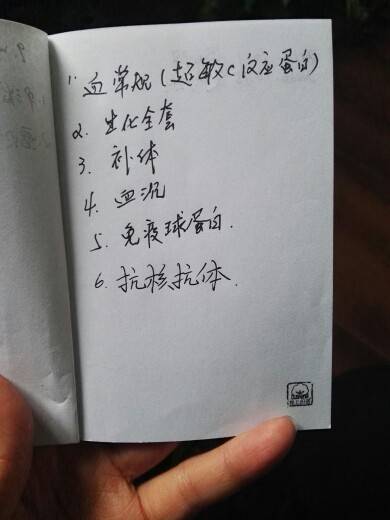 1. 血常规（超敏C反应蛋白）
2. 生化全套
3. 补体
4. 血沉
5. 免疫球蛋白.
6. 抗核抗体.